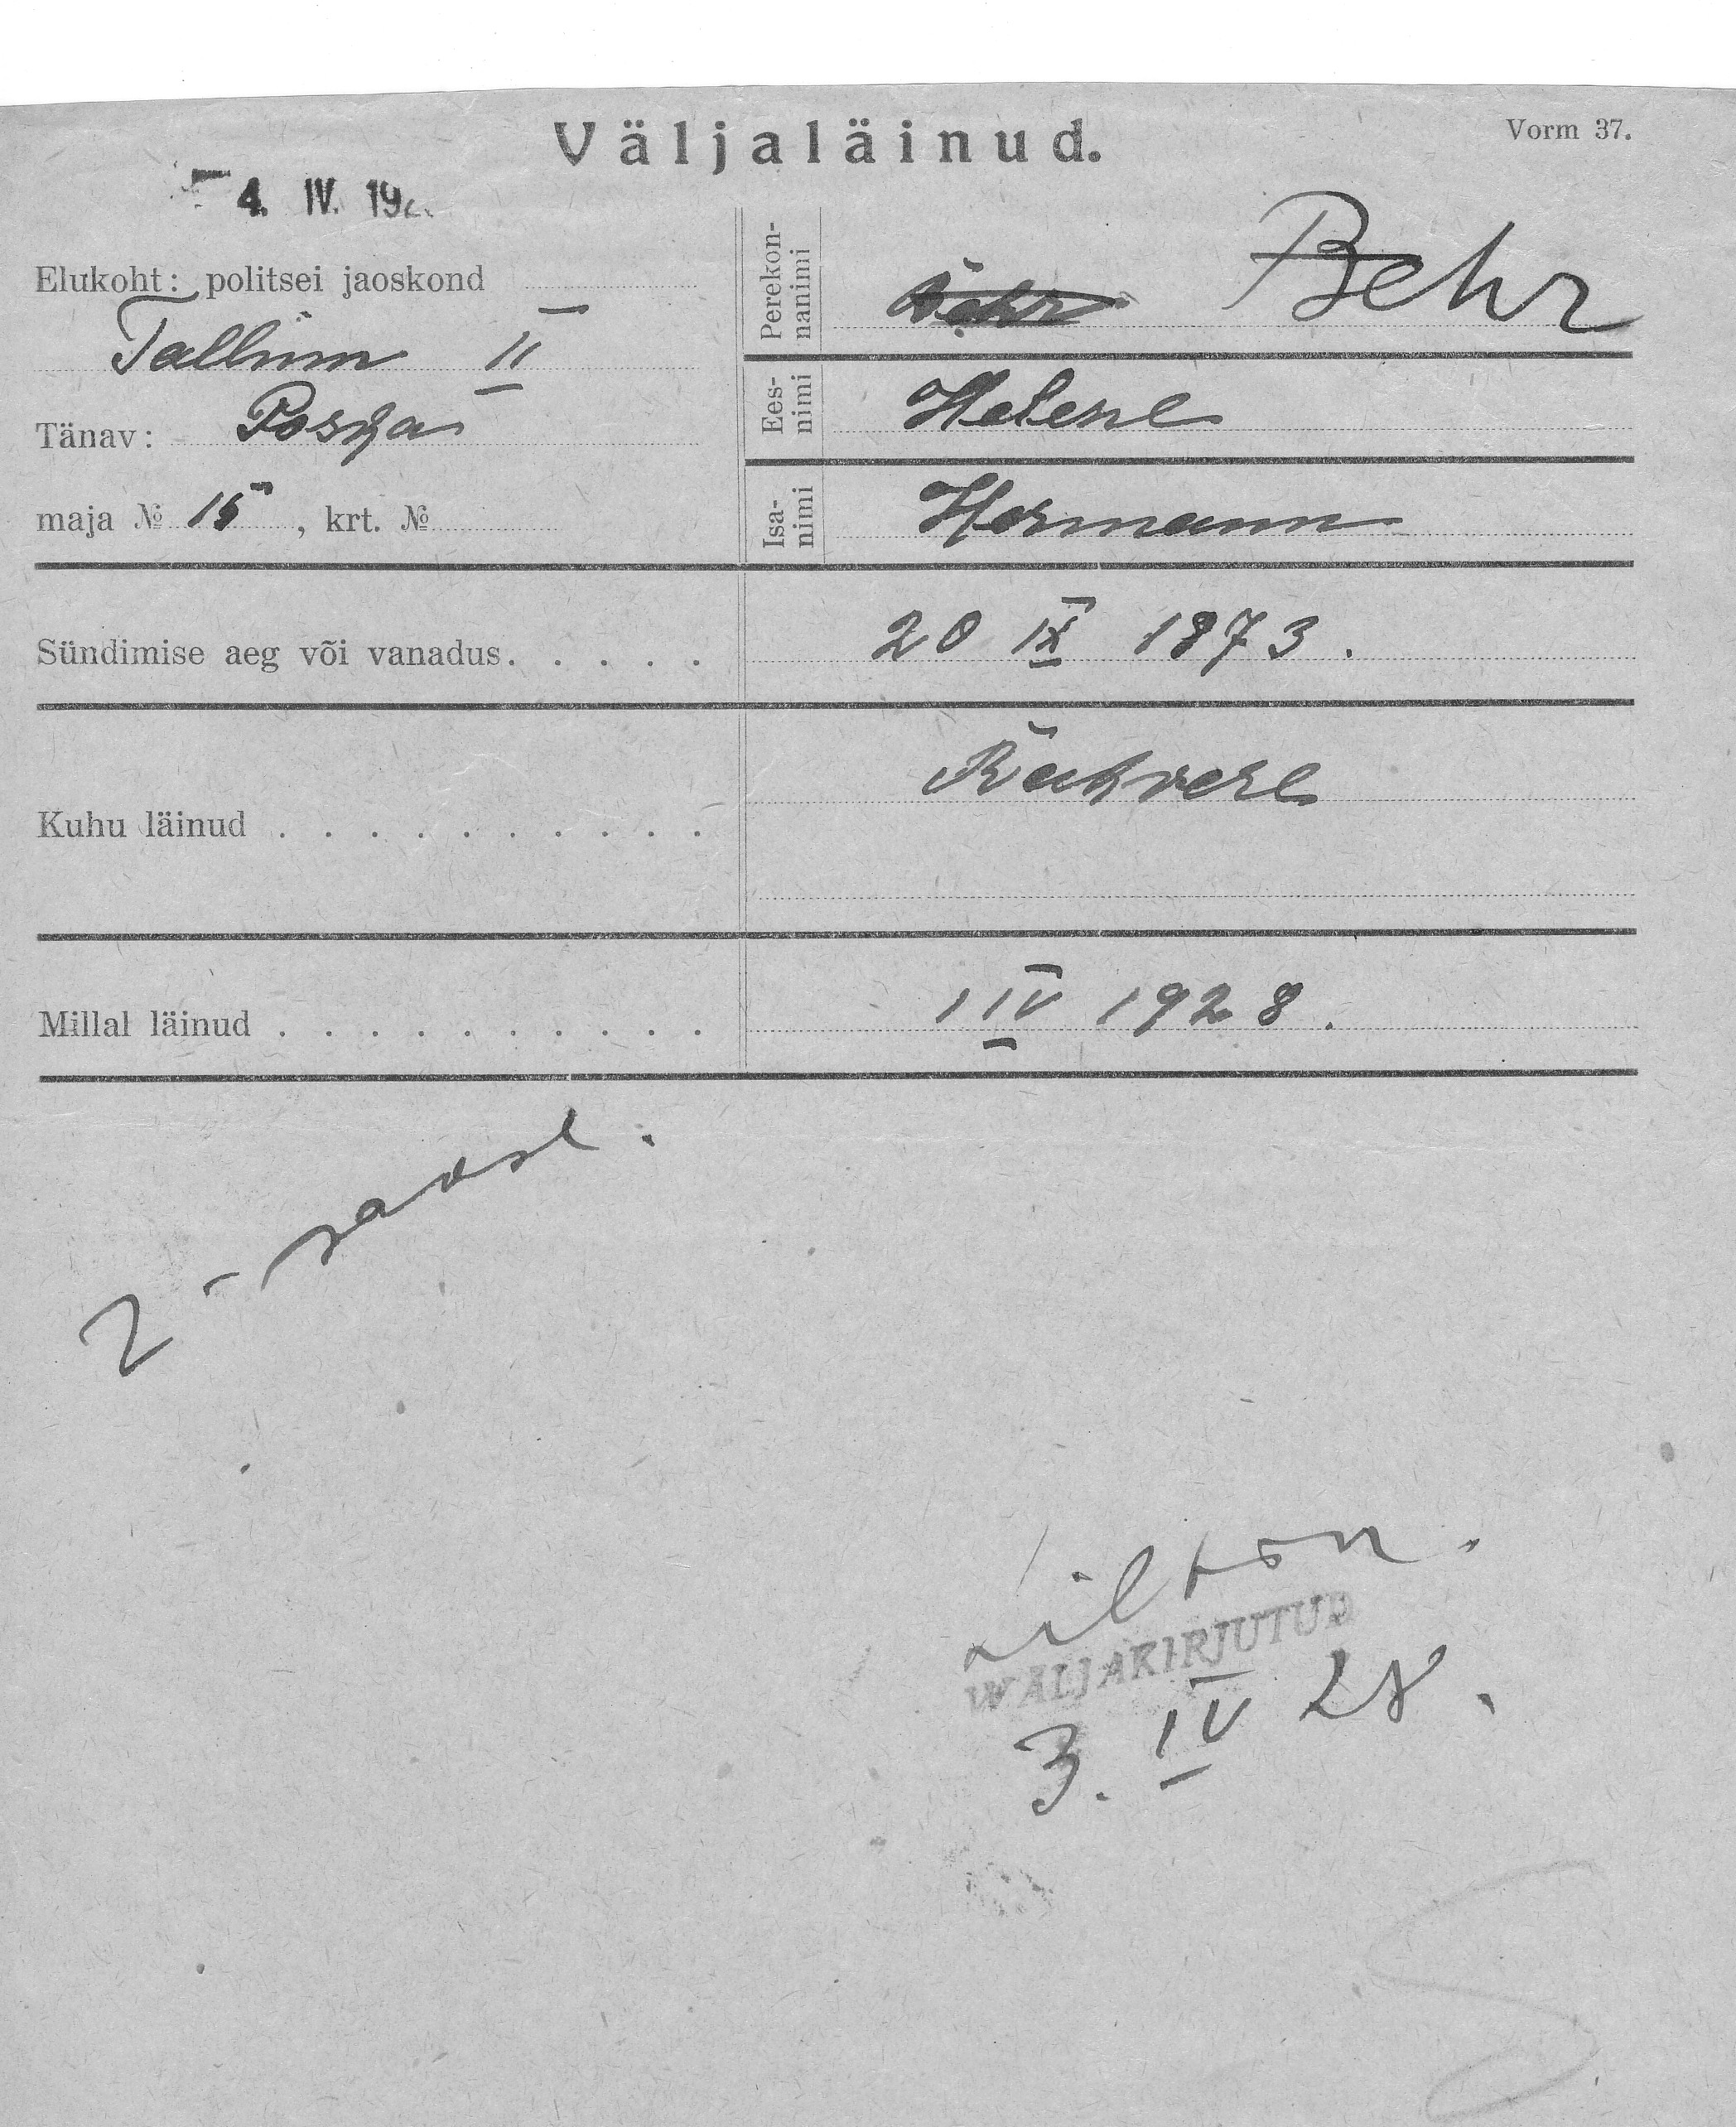 Väljaläinud.
Vorm 37.
4. IV. 192
Elukoht: politsei jaoskond
Tallinn II
Tänav: Poska
maja № 15, krt. №
Perekonnanimi Behr
Eesnimi Helene
Isanimi Hermann
Sündimise aeg või vanadus. . . . . 20 IX 1873.
Kuhu läinud . . . . . . . . . . Rakvere
Millal läinud . . . . . . . . . . 1 IV 1928.
2 - jaosk.
WÄLJAKIRJUTUD
3. IV 28.